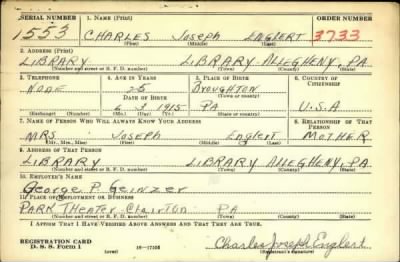 SERIAL NUMBER 1. NAME (Print) ORDER NUMBER
1553 CHARLES Joseph Englert 3733
(First) (Middle) (Last)
2. ADDRESS (Print)
LIBRARY LIBRARY ALLEGHENY, PA.
(Number and street or R. F. D. number) (Town) (County) (State)
3. TELEPHONE 4. AGE IN YEARS 5. PLACE OF BIRTH 6. COUNTRY OF CITIZENSHIP
NONE 25 Broughton
DATE OF BIRTH (Town or county)
6 3 1915 PA U.S.A
(Exchange) (Number) (Mo.) (Day) (Yr.) (State or country)
7. NAME OF PERSON WHO WILL ALWAYS KNOW YOUR ADDRESS 8. RELATIONSHIP OF THAT PERSON
MRS. Joseph Englert MOTHER
(Mr., Mrs., Miss) (First) (Middle) (Last)
9. ADDRESS OF THAT PERSON
LIBRARY LIBRARY ALLEGHENY, PA.
(Number and street or R. F. D. number) (Town) (County) (State)
10. EMPLOYER'S NAME
George P. Geinzer
11. PLACE OF EMPLOYMENT OR BUSINESS
PARK Theater Clairton PA
(Number and street or R. F. D. number) (Town) (County) (State)
I AFFIRM THAT I HAVE VERIFIED ABOVE ANSWERS AND THAT THEY ARE TRUE.
REGISTRATION CARD
D. S. S. Form 1 (over) 16—17105 Charles Joseph Englert
(Registrant's signature)